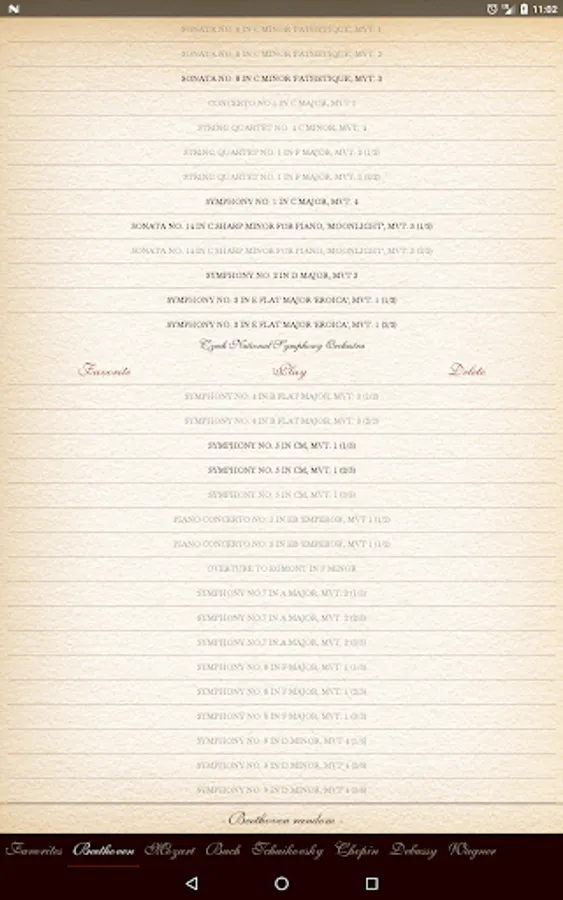 11:02
SONATA NO. 8 IN C MINOR 'PATHETIQUE', MVT. 1
SONATA NO. 8 IN C MINOR 'PATHETIQUE', MVT. 2
SONATA NO. 8 IN C MINOR 'PATHETIQUE', MVT. 3
CONCERTO NO 1 IN C MAJOR, MVT 1
STRING QUARTET NO. 4 C MINOR, MVT. 4
STRING QUARTET NO. 1 IN F MAJOR, MVT. 3 (1/2)
STRING QUARTET NO. 1 IN F MAJOR, MVT. 3 (2/2)
SYMPHONY NO. 1 IN C MAJOR, MVT. 4
SONATA NO. 14 IN C SHARP MINOR FOR PIANO, 'MOONLIGHT', MVT. 3 (1/2)
SONATA NO. 14 IN C SHARP MINOR FOR PIANO, 'MOONLIGHT', MVT. 3 (2/2)
SYMPHONY NO. 2 IN D MAJOR, MVT 3
SYMPHONY NO. 3 IN E FLAT MAJOR 'EROICA', MVT. 1 (1/2)
SYMPHONY NO. 3 IN E FLAT MAJOR 'EROICA', MVT. 1 (2/2)
Czech National Symphony Orchestra
Favorite Play Delete
SYMPHONY NO. 4 IN B FLAT MAJOR, MVT. 3 (1/2)
SYMPHONY NO. 4 IN B FLAT MAJOR, MVT. 3 (2/2)
SYMPHONY NO. 5 IN CM, MVT. 1 (1/3)
SYMPHONY NO. 5 IN CM, MVT. 1 (2/3)
SYMPHONY NO. 5 IN CM, MVT. 1 (3/3)
PIANO CONCERTO NO. 5 IN EB 'EMPEROR', MVT 1 (1/2)
PIANO CONCERTO NO. 5 IN EB 'EMPEROR', MVT 1 (1/2)
OVERTURE TO EGMONT IN F MINOR
SYMPHONY NO.7 IN A MAJOR, MVT. 2 (1/3)
SYMPHONY NO.7 IN A MAJOR, MVT. 2 (2/3)
SYMPHONY NO.7 IN A MAJOR, MVT. 2 (3/3)
SYMPHONY NO. 8 IN F MAJOR, MVT. 1 (1/3)
SYMPHONY NO. 8 IN F MAJOR, MVT. 1 (2/3)
SYMPHONY NO. 8 IN F MAJOR, MVT. 1 (3/3)
SYMPHONY NO. 9 IN D MINOR, MVT 4 (1/3)
SYMPHONY NO. 9 IN D MINOR, MVT 4 (2/3)
SYMPHONY NO. 9 IN D MINOR, MVT 4 (3/3)
- Beethoven random -
Favorites Beethoven Mozart Bach Tchaikovsky Chopin Debussy Wagner